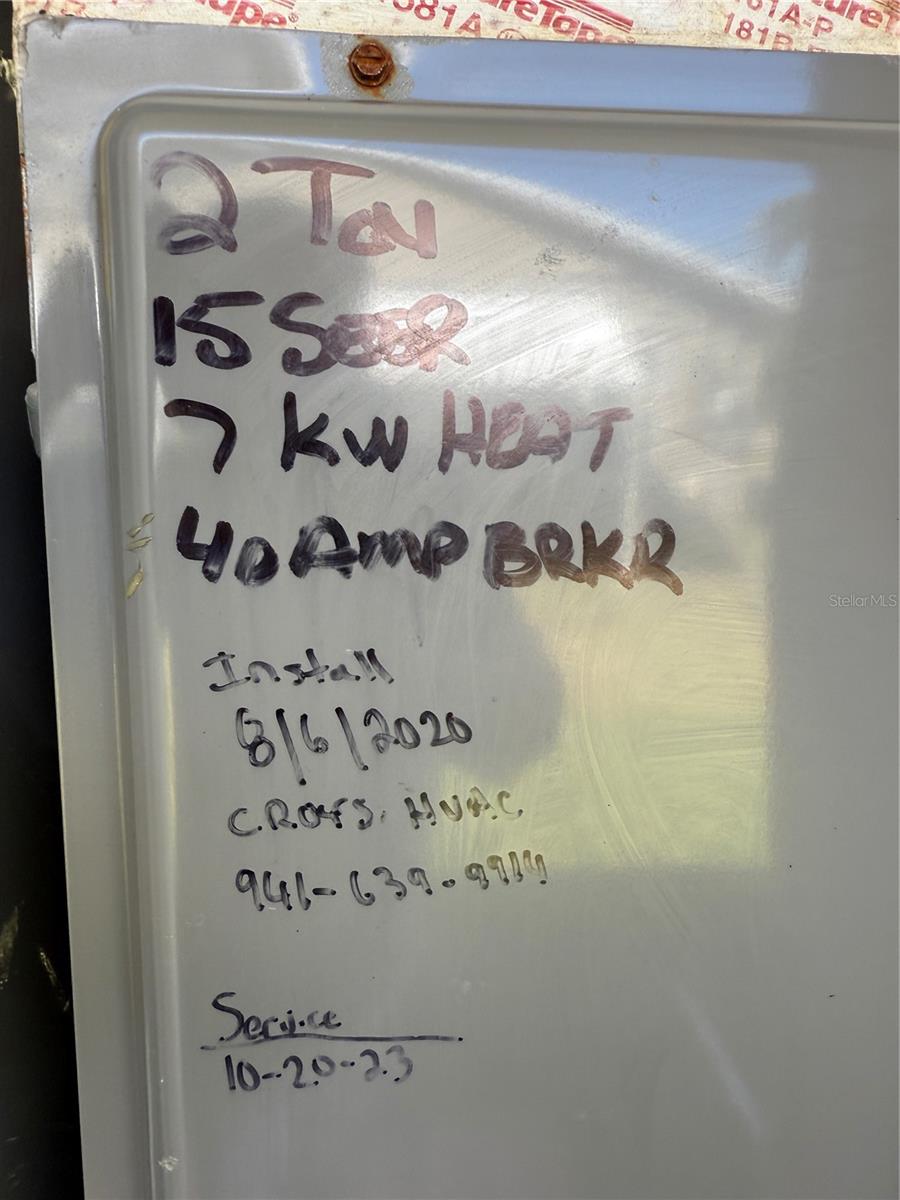 ureTape
181B
081A
reTape
161A-P
ureT
2 TON
15 SEER
7 KW HEAT
40 Amp BRKR
Stellar MLS
Install
8/6/2020
HVAC
941-639-9914
Service
10-20-23